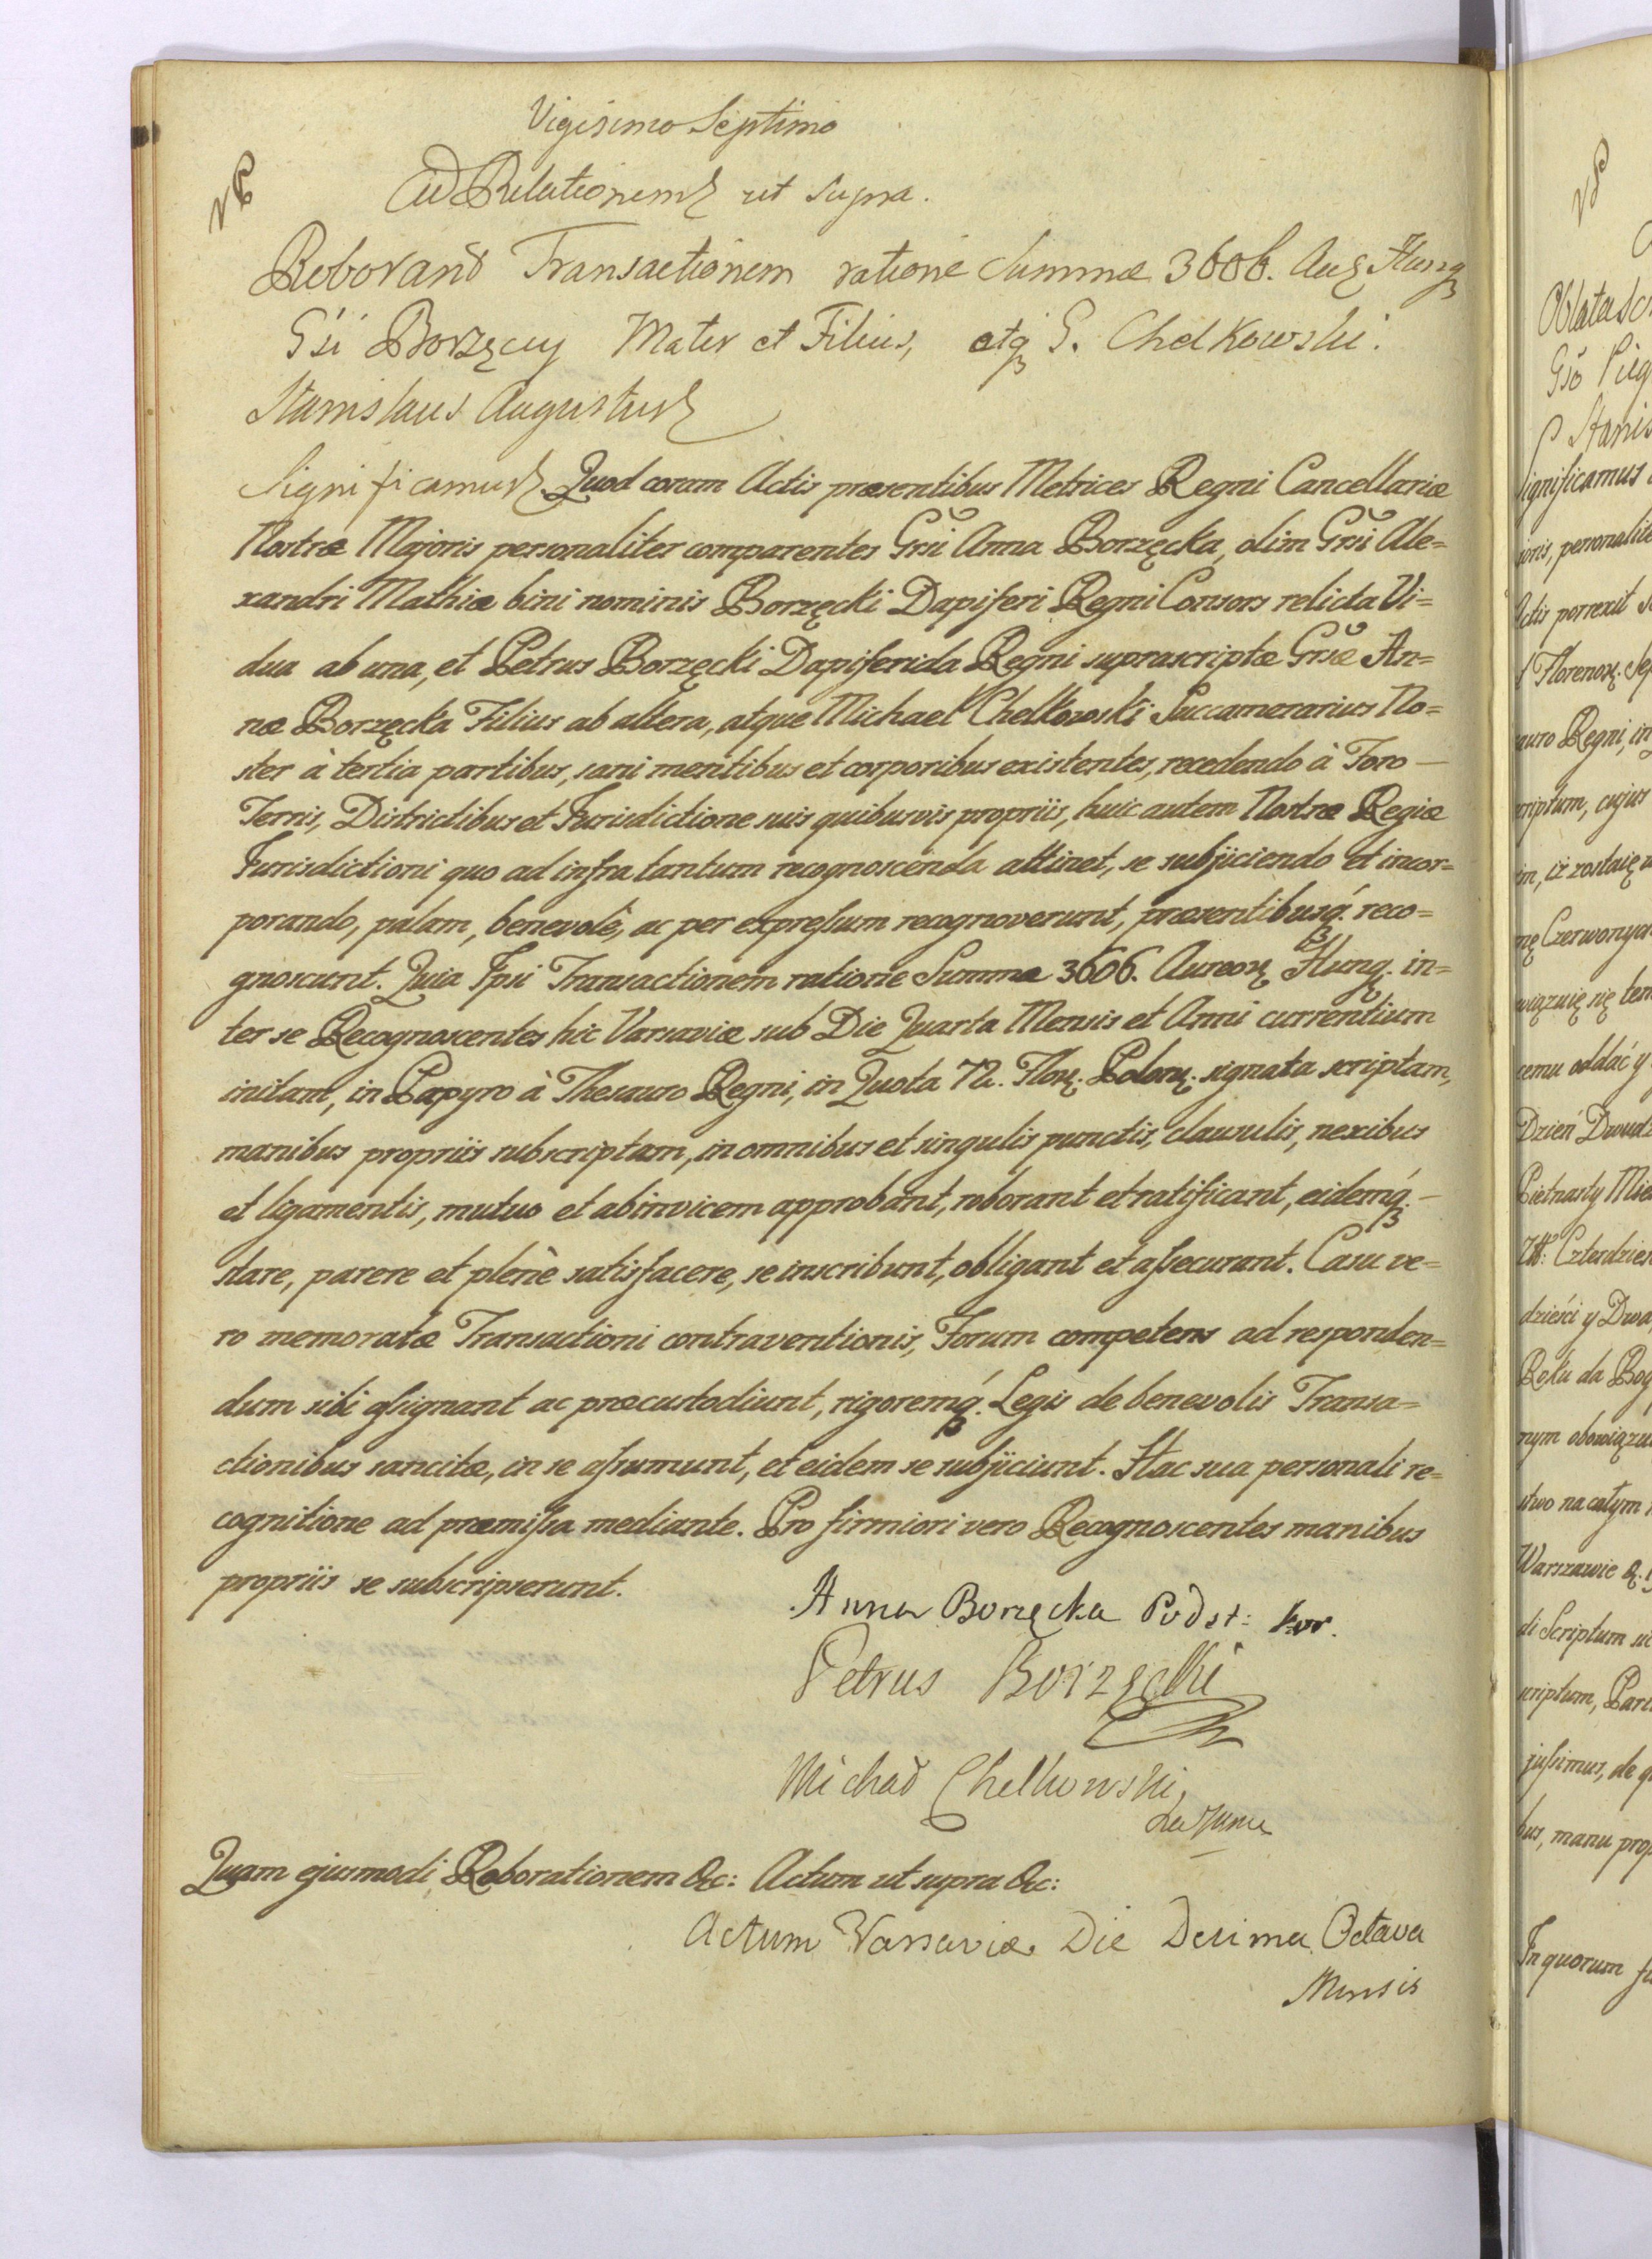 Vigisimo Septimo
Ad Relationem ut Supra.
Roborand Transactionem ratione Summæ 3606. Aug Hung
Gsi Borzęcy Mater et Filius, atq G. Chelkowski.
Stanislaus Augustus
Significamus Quod coram Actis præsentibus Metrices Regni Cancellariæ
Nostræ Majoris personaliter comparentes Grsi Anna Borzęcka, olim Grsi Ale=
xandri Mathiæ bini nominis Borzęcki Dapiferi Regni Consors relicta Vi=
dua ab una, et Petrus Borzęcki Dapiferida Regni suprascriptæ Grsæ An=
næ Borzęcka Filius ab altera, atque Michael Chelkowski Succamerarius No=
ster à tertia partibus, sani mentibus et corporibus existentes, recedendo à Foro —
Terris, Districtibus et Jurisdictione suis quibusvis propriis, huic autem Nostræ Regiæ
Jurisdictioni quo ad infra tantum recognoscenda attinet, se subjiciendo et incor=
porando, palam, benevolè, ac per expressum recognoverunt, præsentibusq. reco=
gnoscunt. Quia Ipsi Transactionem ratione Summæ 3606. Aureor Hung. in=
ter se Recognoscentes hic Varsaviæ sub Die Quarta Mensis et Anni currentium
initam, in Papyro à Thesauro Regni, in Quota 72. Flor. Polon. signata scriptam,
manibus propriis subscriptam, in omnibus et singulis punctis, clausulis, nexibus
et ligamentis, mutuo et abinvicem approbant, roborant et ratificant, eidemq. —
stare, parere et plenè satisfacere, se inscribunt, obligant et assecurant. Casu ve=
ro memoratæ Transactioni contraventionis, Forum competens ad responden=
dum sibi assignant ac præcustodiunt, rigoremq. Legis de benevolis Transa=
ctionibus sancitæ, in se assumunt, et eidem se subjiciunt. Hac sua personali re=
cognitione ad præmissa mediante. Pro firmiori vero Recognoscentes manibus
propriis se subscripserunt.
Anna Borzęcka Podst: kor.
Petrus Borzęcki
Michał Chelkowski
Quam ejusmodi Roborationem &c: Actum ut supra &c:
Actum Varsaviæ Die Decima Octava
Mensis
Gsō
Stanis
significamus
ionis, personalite
Actis porrexit
Florenor. Sep
auro Regni, in
criptum, cujus
im, iż zostaię
nę Czerwonych
wiązuię się ten
cemu oddać y
Dzień Dwudz
Pietnasty Mie
Czterdzies
dzieści y Dwa
Roku da Bog
nym obowiązu
stwo na całym
Warszawie
di Scriptum
scriptum, Par
jussimus, de
bus, manu prop
In quorum